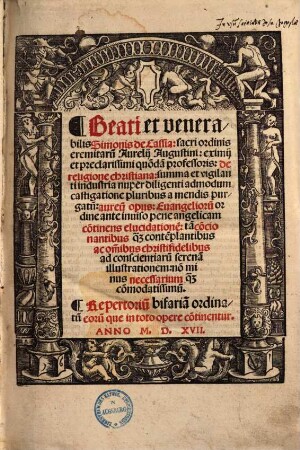 ¶Beati et venera
bilis Simonis de Cassia: sacri ordinis
eremitarū Aurelij Augustini: eximij
et preclarissimi quōdā professoris: de
religione christiana: summa et vigilan
ti industria nuper diligenti admodum
castigatione pluribus a mendis pur
gatū: aureū opus: Euangeliorū or
dine ante inuiso pene angelicam
cōtinens elucidationē: tā cōcio
nantibus q̄ contēplantibus
ac oībus christifidelibus
ad conscientiarū serenā
illustrationem nō mi
nus necessarium q̄
cōmodatissimū.
¶Repertoriū bifariā ordina
tū eorū que in toto opere cōtinentur.
ANNO M. D. XVII.